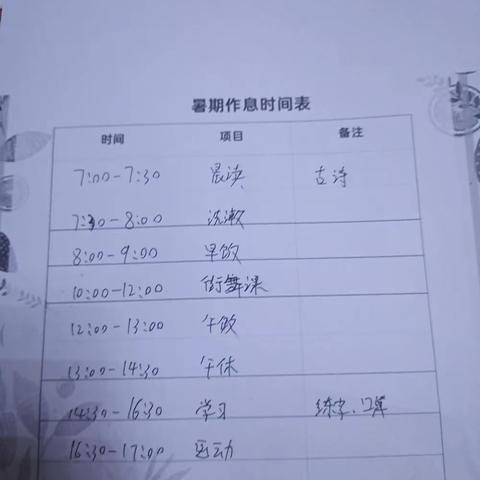 暑期作息时间表
时间 项目 备注
7:00-7:30 晨读 古诗
7:30-8:00 洗漱
8:00-9:00 早饭
10:00-12:00 街舞课
12:00-13:00 午饭
13:00-14:30 午休
14:30-16:30 学习 练字、口算
16:30-17:00 运动